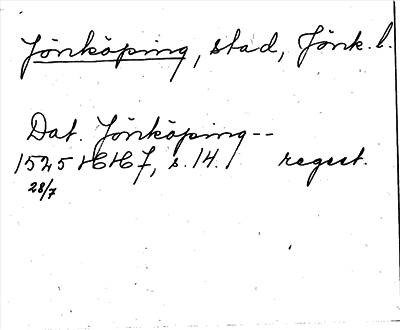 Jönköping, stad, Jönk. l.
Dat. Jönköping--
1525 HH 7, s. 14. regest.
28/7